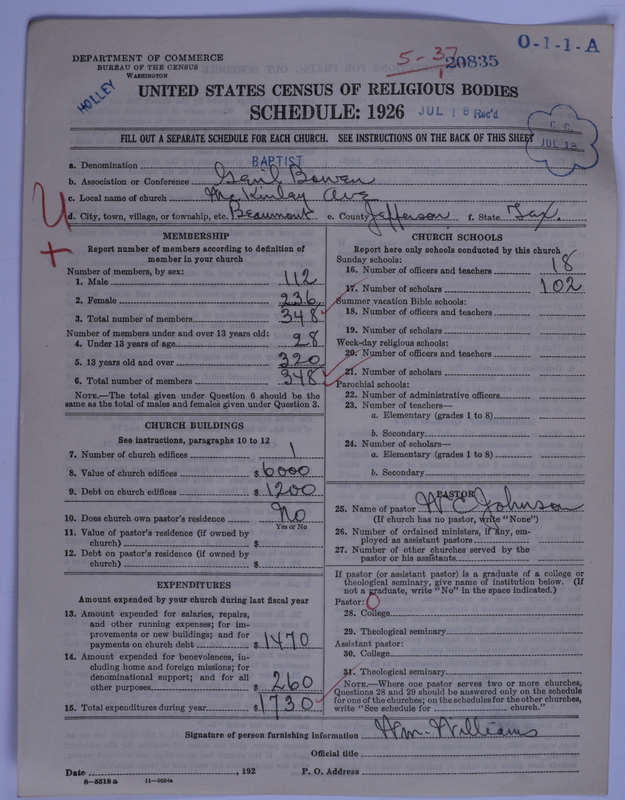 O-1-1-A
5-37
20835
DEPARTMENT OF COMMERCE
BUREAU OF THE CENSUS
WASHINGTON
HOLLEY
UNITED STATES CENSUS OF RELIGIOUS BODIES
SCHEDULE: 1926
JUL 18 Rec'd
FILL OUT A SEPARATE SCHEDULE FOR EACH CHURCH. SEE INSTRUCTIONS ON THE BACK OF THIS SHEET
C. C.
JUL 18
a. Denomination BAPTIST
b. Association or Conference Gail Bowen
c. Local name of church McKinley Ave
d. City, town, village, or township, etc. Beaumont e. County Jefferson f. State Tex.
MEMBERSHIP
Report number of members according to definition of
member in your church
Number of members, by sex:
1. Male 112
2. Female 236
3. Total number of members 348
Number of members under and over 13 years old:
4. Under 13 years of age 28
5. 13 years old and over 320
6. Total number of members 348
NOTE.—The total given under Question 6 should be the
same as the total of males and females given under Question 3.
CHURCH BUILDINGS
See instructions, paragraphs 10 to 12
7. Number of church edifices 1
8. Value of church edifices $ 6000
9. Debt on church edifices $ 1200
10. Does church own pastor's residence No
Yes or No
11. Value of pastor's residence (if owned by
church) $
12. Debt on pastor's residence (if owned by
church) $
EXPENDITURES
Amount expended by your church during last fiscal year
13. Amount expended for salaries, repairs,
and other running expenses; for im-
provements or new buildings; and for
payments on church debt $ 1470
14. Amount expended for benevolences, in-
cluding home and foreign missions; for
denominational support; and for all
other purposes $ 260
15. Total expenditures during year $ 1730
CHURCH SCHOOLS
Report here only schools conducted by this church
Sunday schools:
16. Number of officers and teachers 18
17. Number of scholars 102
Summer vacation Bible schools:
18. Number of officers and teachers
19. Number of scholars
Week-day religious schools:
20. Number of officers and teachers
21. Number of scholars
Parochial schools:
22. Number of administrative officers
23. Number of teachers—
a. Elementary (grades 1 to 8)
b. Secondary
24. Number of scholars—
a. Elementary (grades 1 to 8)
b. Secondary
PASTOR
25. Name of pastor W E Johnson
(If church has no pastor, write "None")
26. Number of ordained ministers, if any, em-
ployed as assistant pastors
27. Number of other churches served by the
pastor or his assistants
If pastor (or assistant pastor) is a graduate of a college or
theological seminary, give name of institution below. (If
not a graduate, write "No" in the space indicated.)
Pastor: O
28. College
29. Theological seminary
Assistant pastor:
30. College
31. Theological seminary
NOTE.—Where one pastor serves two or more churches,
Questions 28 and 29 should be answered only on the schedule
for one of the churches; on the schedules for the other churches,
write "See schedule for church."
Signature of person furnishing information Wm. Williams
Official title
Date , 192 P. O. Address
8-5518a 11-9004a